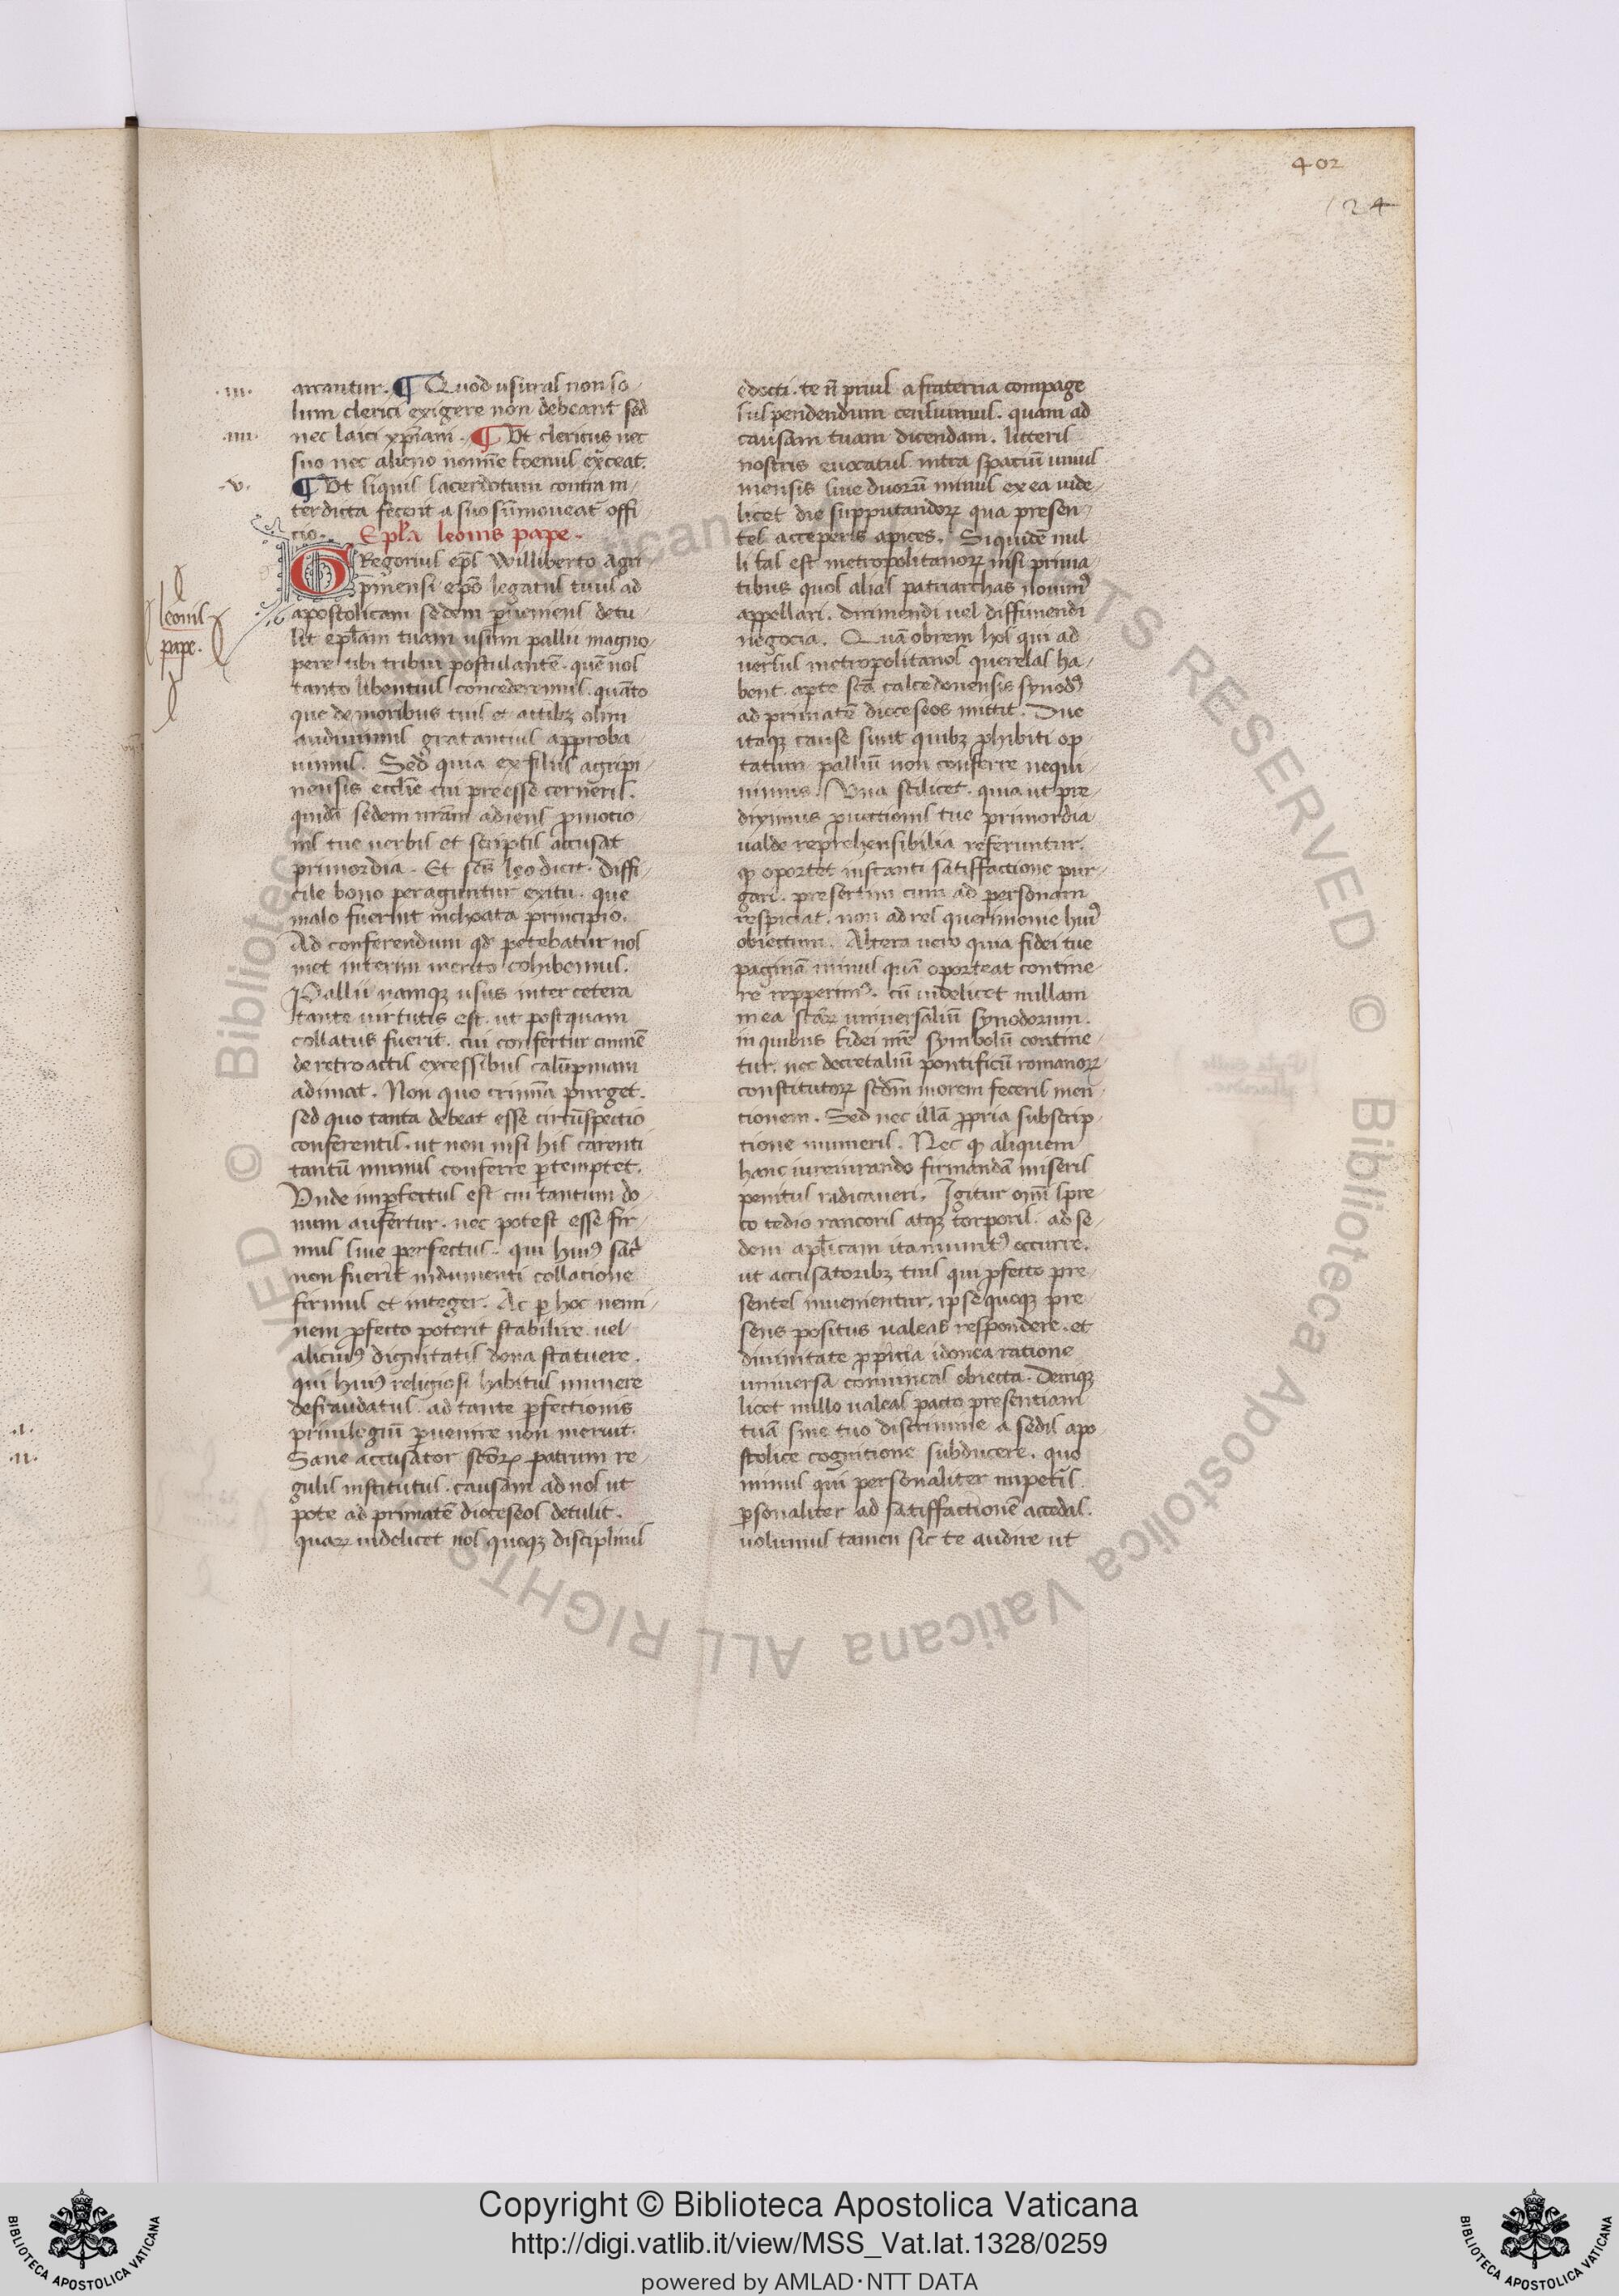 402
124
.iii. arcantur. ¶ Quod usuras non so
lum clerici exigere non debeant sed
.iiii. nec laici xp̄iani. ¶ Vt clericus nec
suo nec alieno noīe foenus ex̄ceat.
.v. ¶ Vt siquis sacerdotum contra in
terdicta fecerit a suo sūmoueat offi
cio. Epl̄a leonis pape.
GRegorius ep̄s Williberto Agri
pīnensi ep̄o legatus tuus ad
apostolicam sedem ꝑueniens detu
leonis
pape.
lit epl̄am tuam usum pallii magno
pere tibi tribui postulantē. quē nos
tanto libentius concederemus. quāto
que de moribus tuis et actibꝫ olim
audiuimus gratantius approba
uimus. Sed quia ex filiis agripi
nensis eccl̄ie cui preesse cerneris.
quidā sedem nr̄am adiens ꝓmotio
nis tue uerbis et scriptis accusat
primordia. Et sc̄s leo dicit. diffi
cile bono peraguntur exitu. que
malo fuerint inchoata principio.
Ad conferendum qd̄ petebatur nos
met interim merito cohibemus.
Pallii namqꝫ usus inter cetera
tante uirtutis est. ut postquam
collatus fuerit. cui confertur omnē
de retroactis excessibus calūpniam
adimat. Non quo crimīa purget.
sed quo tanta debeat esse circūspectio
conferentis. ut non nisi his carenti
tantū munus conferre ꝑtemptet.
Vnde imꝑfectus est cui tantum do
num aufertur. nec potest esse fir
mus siue perfectus. qui huiꝰ sac̄
non fuerit indumenti collacione
firmus et integer. Ac ꝑ hoc nemi
nem ꝓfecto poterit stabilire. uel
alicuiꝰ dignitatis dona statuere.
qui huiꝰ religiosi habitus munere
defraudatus. ad tante ꝑfectionis
priuilegiū ꝑuenire non meruit.
Sane accusator sc̄orꝝ patrum re
gulis institutus. causam ad nos ut
pote ad primatē dioceseos detulit.
quarꝝ uidelicet nos quoqꝫ disciplinis
edocti. te n̄ prius a fraterna compage
suspendendum censuimus. quam ad
causam tuam dicendam. litteris
nostris euocatus. intra spaciū unius
mensis siue duorū minus ex ea uide
licet die supputandorꝝ qua presen
tes acceperis apices. Siquidē nul
li fas est metropolitanorꝝ nisi prima
tibus quos alias patriarchas nouimꝰ
appellari. dirimendi uel diffiniendi
negocia. Quā obrem hos qui ad
uersus metropolitanos querelas ha
bent. apte sc̄a calcedonensis synodꝰ
ad primatē dioceseos mittit. Due
itaqꝫ cause sunt quibꝫ ꝓhibiti op
tatum palliū non conferre nequi
uimus. Vna scilicet. quia ut pre
diximus ꝓuectionis tue primordia
ualde reprehensibilia referuntur.
qꝫ oportet instanti satisfactione pur
gari. presertim cum ad personam
respiciat. non ad res querimonie huiꝰ
obiectum. Altera uero quia fidei tue
paginā minus quā oporteat contine
re repperimꝰ. cū uidelicet nullam
in ea sc̄arꝝ uniuersaliū synodorum.
in quibus fidei nr̄e symbolū contine
tur. nec decretaliū pontificū romanorꝝ
constitutorꝝ scd̄m morem feceris men
tionem. Sed nec illā ꝓpria subscrip
tione muneris. Nec qꝫ aliquem
hanc iureiurando firmandā miseris
penitus radicaueri. Igitur omī spre
to tedio rancoris atqꝫ torporis. ad se
dem apl̄icam ita munitꝰ occurre.
ut accusatoribꝫ tuis qui ꝓfecto pre
sentes inuenientur. ipse quoqꝫ pre
sens positus ualeas respondere. et
diuinitate ꝓpitia idonea ratione
uniuersa conuincas obiecta. Deniqꝫ
licet nullo ualeas pacto presentiam
tuā sine tuo discrimine a sedis apo
stolice cognitione subducere. quo
minus qui personaliter impetis.
ꝑsonaliter ad satisfactionē accedas.
uolumus tamen sic te audire ut
.i.
.ii.
© Biblioteca Apostolica Vaticana ALL RIGHTS RESERVED
Copyright © Biblioteca Apostolica Vaticana
http://digi.vatlib.it/view/MSS_Vat.lat.1328/0259
powered by AMLAD·NTT DATA
BIBLIOTECA APOSTOLICA VATICANA
BIBLIOTECA APOSTOLICA VATICANA